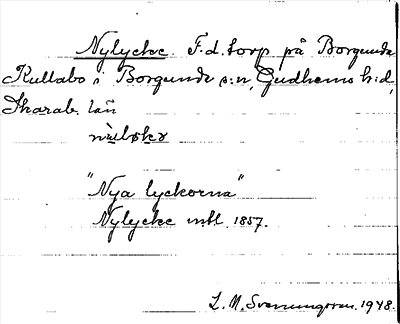 Nylycke. F.d. torp på Borgunda
Kullabo i Borgunda s:n, Gudhems h:d,
Skarab. län
"Nya lyckorna"
Nylycke utbl. 1857.
L. M. Svenungsson. 1948.